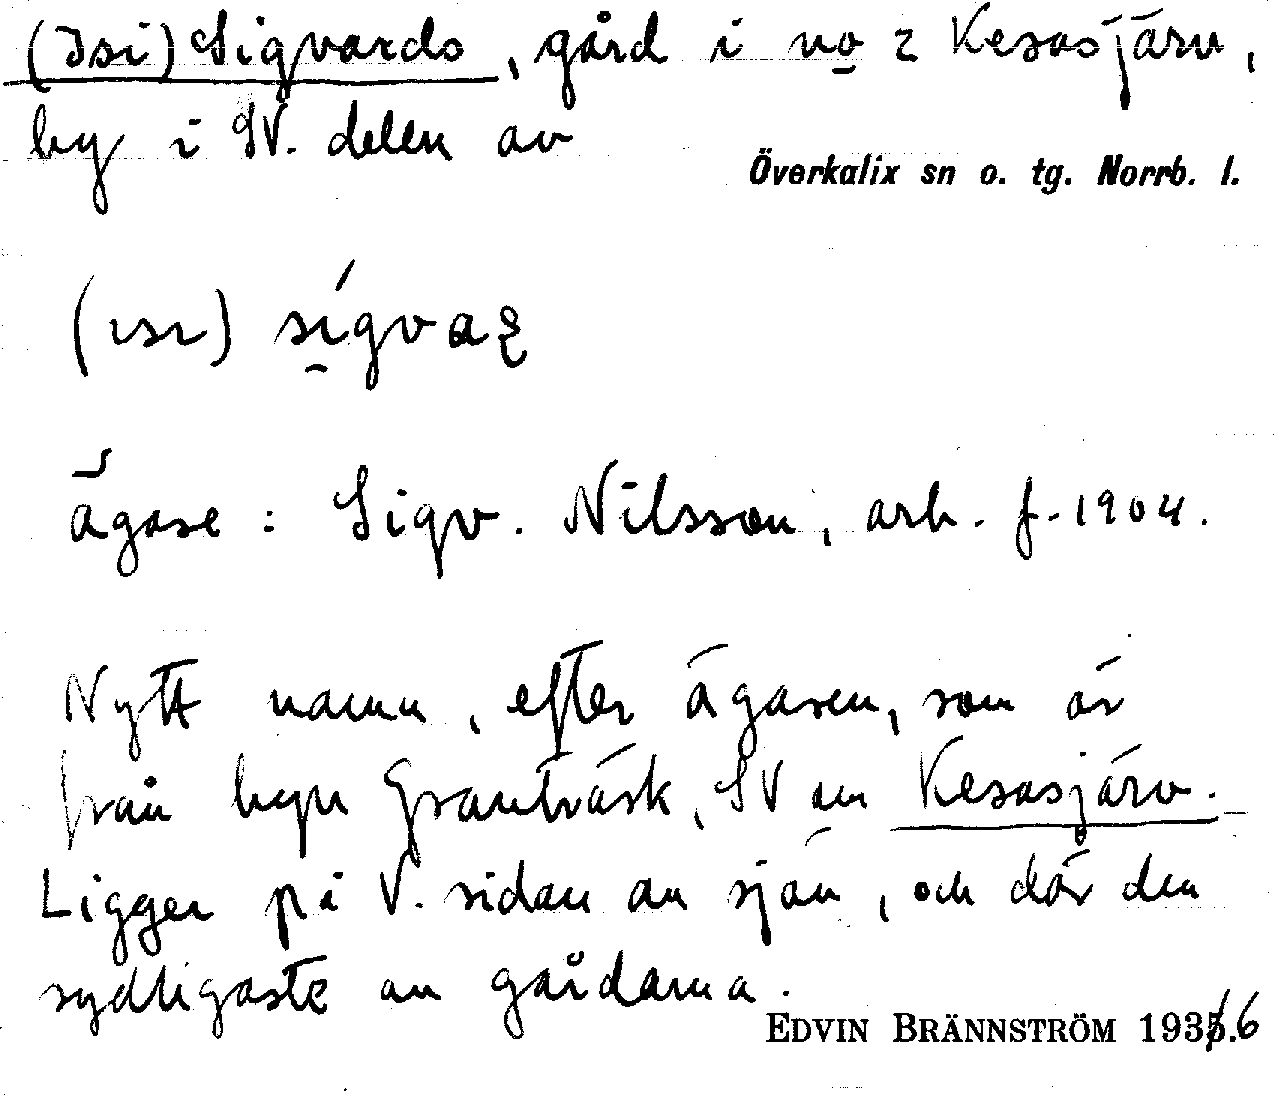 (Isi) Sigvards, gård i no 2 Kesasjärv,
by i SV. delen av
Överkalix sn o. tg. Norrb. l.
(ısı) sígva
ägare : Sigv. Nilsson, arb. f. 1904.
Nytt namn, efter ägaren, som är
från byn Granträsk, SV om Kesasjärv.
Ligger på V. sidan av sjön, och där den
sydligaste av gårdarna.
EDVIN BRÄNNSTRÖM 1935.6